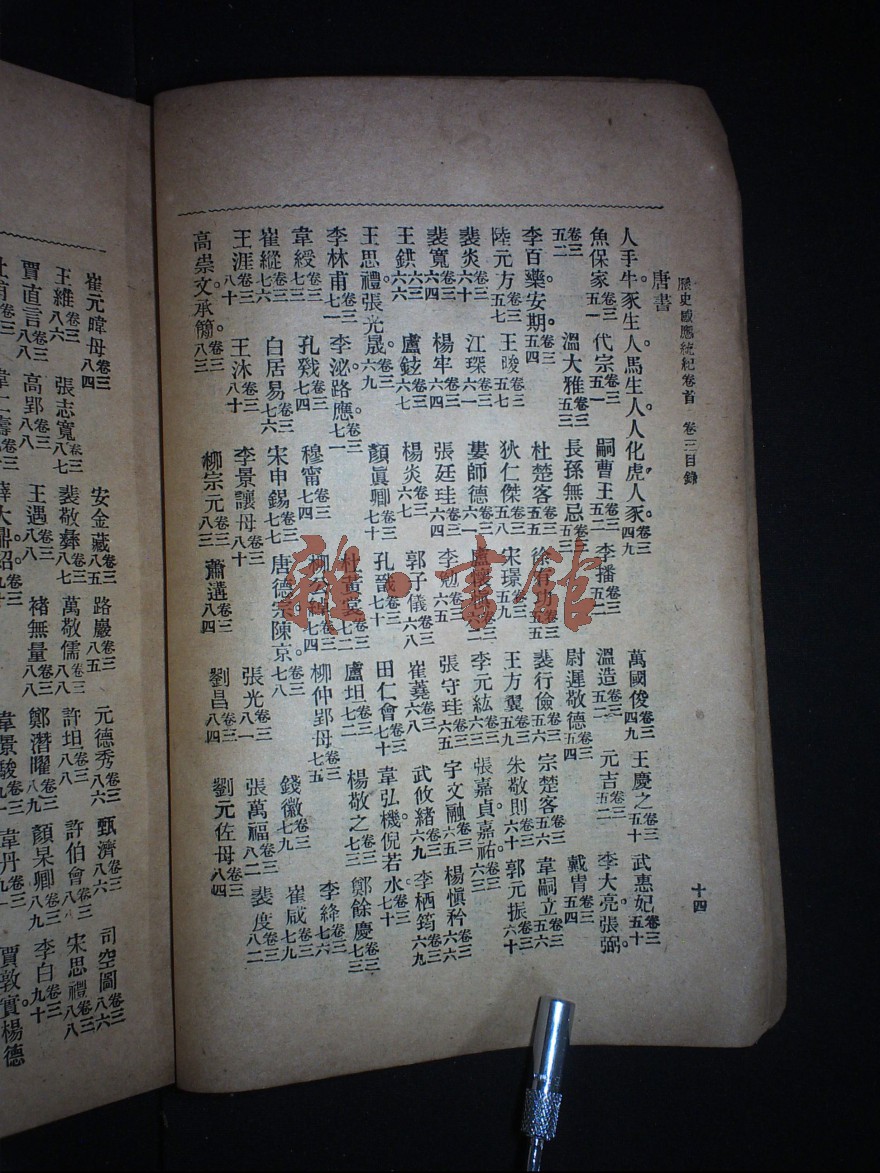 歷史感應統紀卷首 卷三目錄 十四
唐書
人手牛豕生人。馬生人。人化虎。人豕。卷三四九 萬國俊卷三四九 王慶之卷三五十 武惠妃卷三五十
魚保家卷三五一 代宗卷三五一 嗣曹王卷三五二 李播卷三五二 溫造卷三五二 元吉卷三五二 李大亮。張弼。
卷三五二 溫大雅卷三五三 長孫無忌卷三五三 尉遲敬德卷三五四 戴冑卷三五四
李百藥。安期。卷三五四 杜楚客卷三五五 徐有功卷三五五 裴行儉卷三五六 宗楚客卷三五六 韋嗣立卷三五六
陸元方卷三五七 王晙卷三五七 狄仁傑卷三五八 宋璟卷三五九 王方翼卷三五九 朱敬則卷三六十 郭元振卷三六十
裴炎卷三六十 江琛卷三六一 婁師德卷三六一 盧懷慎卷三六二 李元紘卷三六三 張嘉貞。嘉祐。卷三六三
裴寬卷三六四 楊牢卷三六四 張廷珪卷三六四 李勣卷三六五 張守珪卷三六五 宇文融卷三六五 楊愼矜卷三六六
王鉷卷三六六 盧鉉卷三六六 楊炎卷三六七 郭子儀卷三六八 崔蕘卷三六八 武攸緒卷三六九 李栖筠卷三六九
王思禮。張光晟。卷三六九 顏眞卿卷三七十 孔卷三七十 田仁會卷三七十 韋弘機。倪若水。卷三七十
李林甫卷三七一 李泌。路應。卷三七一 杜黃裳卷三七二 盧坦卷三七二 楊敬之卷三七三 鄭餘慶卷三七三
韋綬卷三七三 孔戣卷三七四 穆甯卷三七四 柳公綽卷三七四 柳仲郢母卷三七五 李絳卷三七六
崔縱卷三七六 白居易卷三七六 宋申錫卷三七七 唐德宗。陳京。卷三七八 錢徽卷三七九 崔咸卷三七九
王涯卷三八十 王沐卷三八十 李景讓母卷三八十 張光卷三八一 張萬福卷三八二 裴度卷三八二
高崇文。承簡。卷三八三 柳宗元卷三八三 蕭遘卷三八四 劉昌卷三八四 劉元佐母卷三八四
崔元暐母卷三八四 安金藏卷三八五 路巖卷三八五 元德秀卷三八六 甄濟卷三八六 司空圖卷三八六
王維卷三八六 張志寬卷三八七 裴敬彝卷三八七 萬敬儒卷三八八 許坦卷三八八 許伯會卷三八八 宋思禮卷三八八
賈直言卷三八八 高郢卷三八八 王遇卷三八八 褚無量卷三八八 鄭潛曜卷三八九 顏杲卿卷三八九 李白卷三九十
杜甫卷三 韋仁壽卷三 薛大鼎 韋景駿卷三九一 韋丹卷三九一 賈敦實。楊德
雜·書館